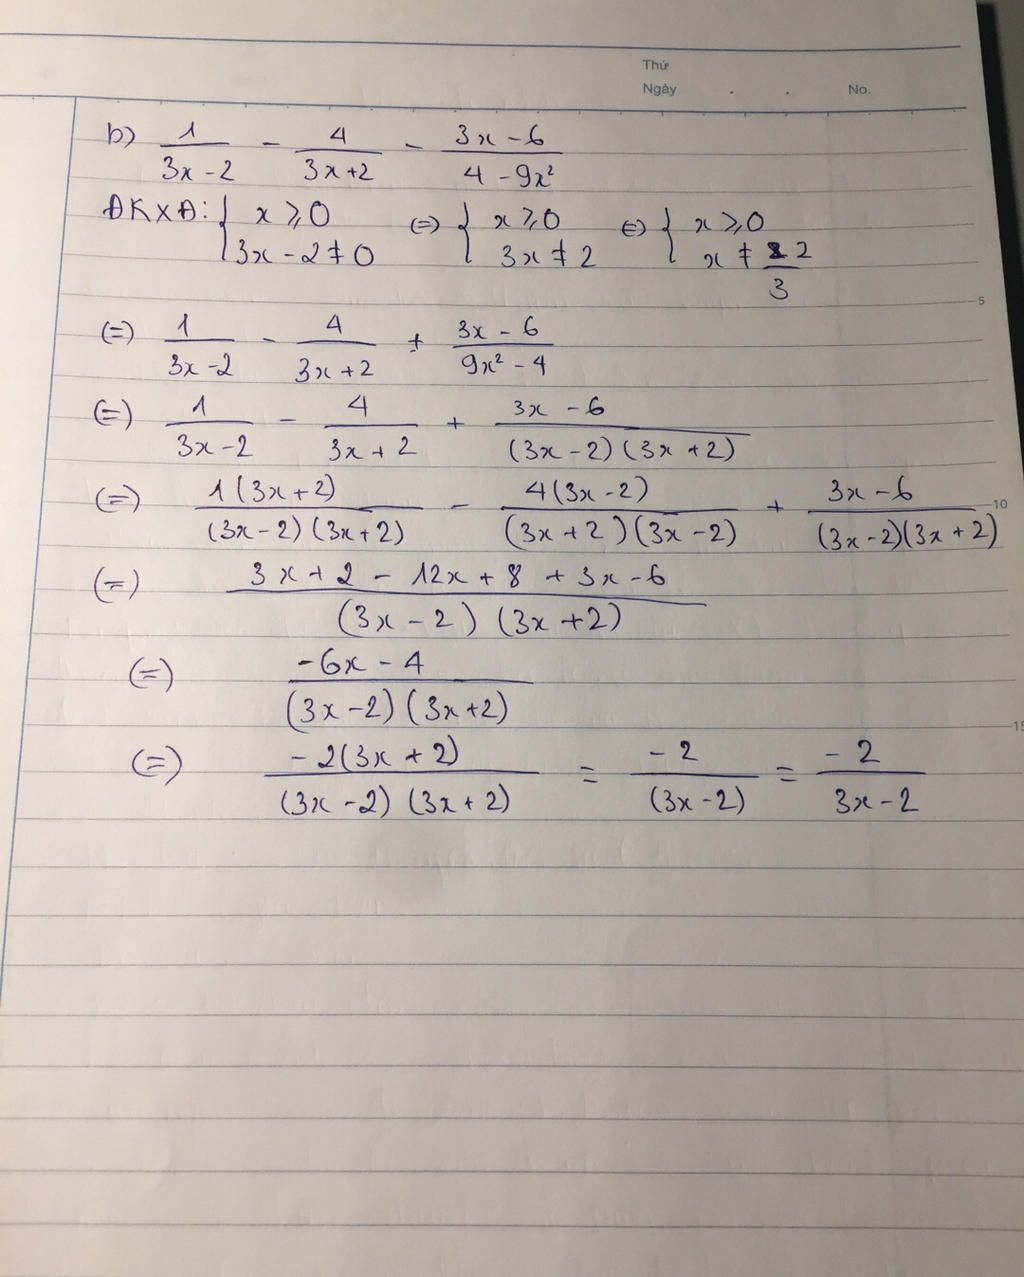 Thứ
Ngày . . No.
b) 1/(3x - 2) - 4/(3x + 2) - (3x - 6)/(4 - 9x²)
ĐKXĐ: { x ⩾ 0 ; 3x - 2 ≠ 0 (=) { x ⩾ 0 ; 3x ≠ 2 (=) { x ⩾ 0 ; x ≠ 2/3
5
(=) 1/(3x - 2) - 4/(3x + 2) + (3x - 6)/(9x² - 4)
(=) 1/(3x - 2) - 4/(3x + 2) + (3x - 6)/((3x - 2)(3x + 2))
(=) 1(3x + 2)/((3x - 2)(3x + 2)) - 4(3x - 2)/((3x + 2)(3x - 2)) + (3x - 6)/((3x - 2)(3x + 2))
10
(=) (3x + 2 - 12x + 8 + 3x - 6)/((3x - 2)(3x + 2))
(=) (-6x - 4)/((3x - 2)(3x + 2))
15
(=) -2(3x + 2)/((3x - 2)(3x + 2)) = -2/(3x - 2) = -2/3x - 2